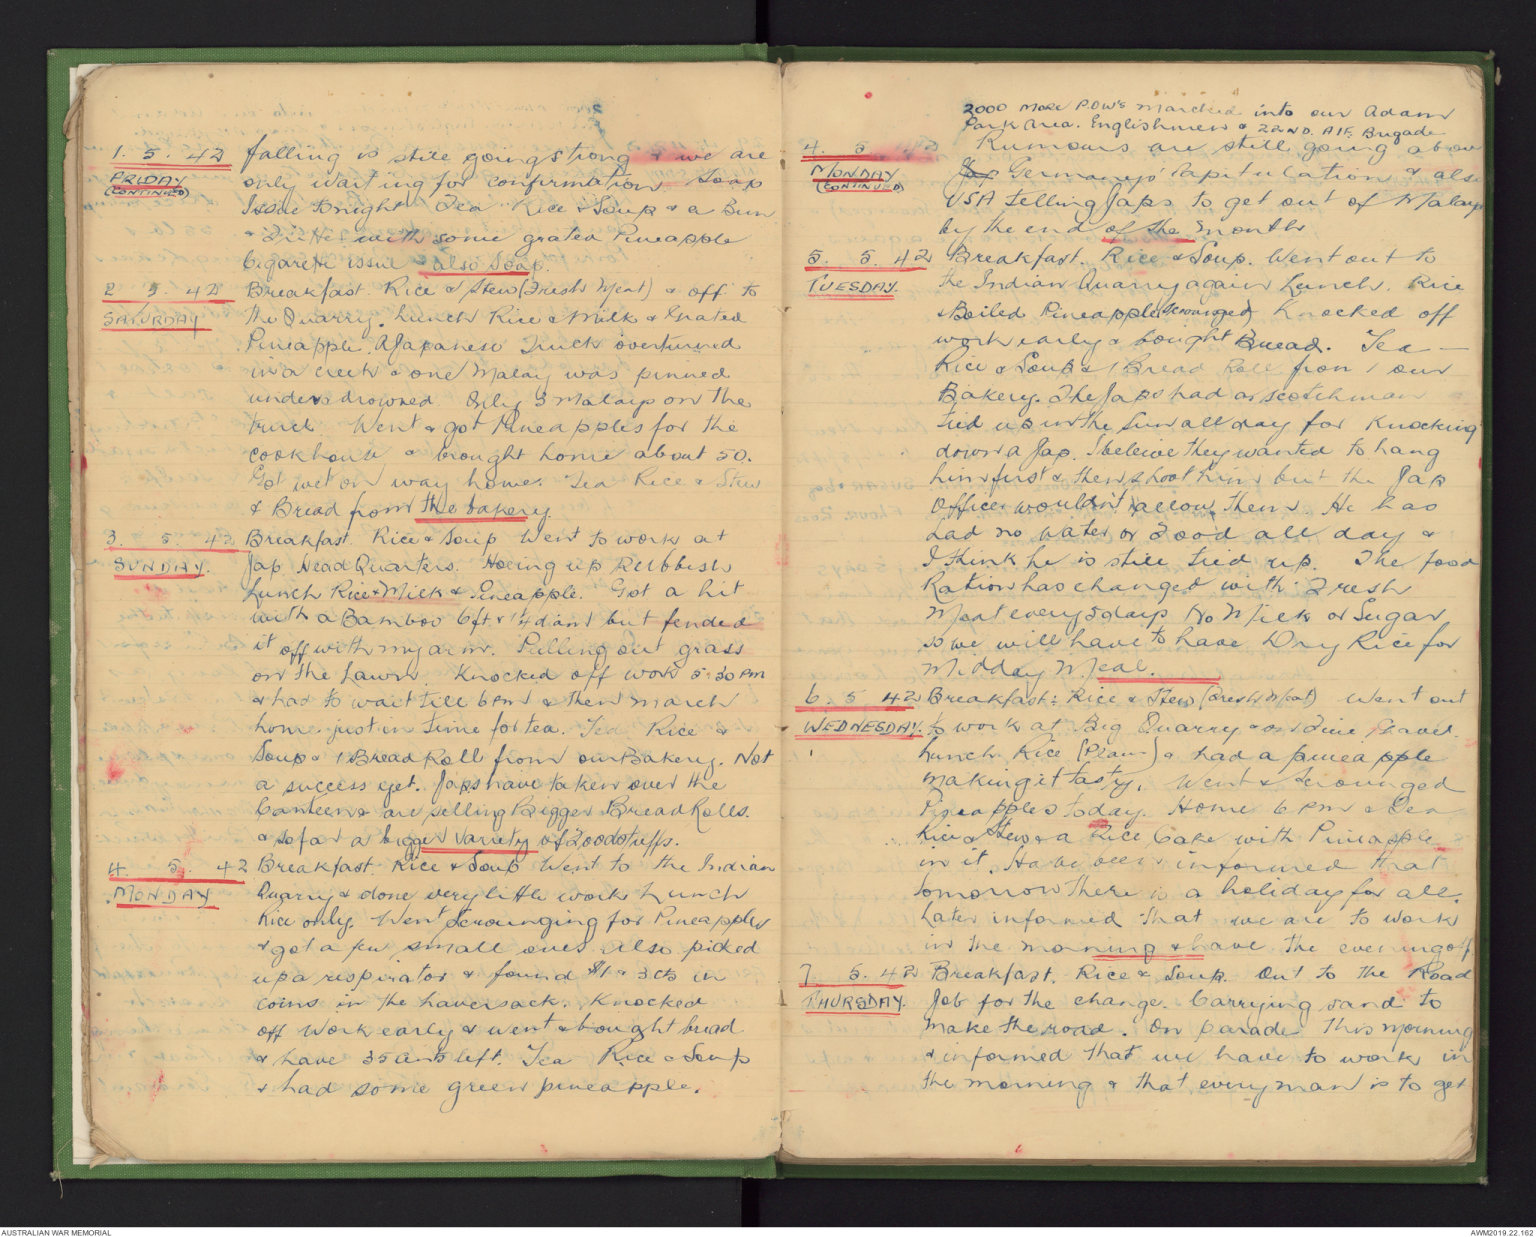 1. 5. 42 falling is still going strong & we are
FRIDAY only waiting for confirmation Soap
(CONTINUED)
Issue tonight Tea Rice & Soup & a Bun
& Fritter with some grated Pineapple
Cigarette issue also Soap.
2 5. 42 Breakfast. Rice & Stew (Fresh Meat) & off to
SATURDAY the Quarry. Lunch Rice & Milk & Grated
Pineapple. A Japanese Truck overturned
in a creek & one Malay was pinned
under & drowned Only 3 Malays on the
truck Went & got Pineapples for the
cookhouse & brought home about 50.
Got wet on way home. Tea Rice & Stew
& Bread from the bakery
3. 5. 42 Breakfast. Rice & Soup Went to work at
SUNDAY. Jap HeadQuarters. Hoeing up Rubbish
Lunch Rice & Milk & Pineapple. Got a hit
with a Bamboo 6ft x 1¼ diam but fended
it off with my arm. Pulling out grass
on the Lawn. Knocked off work 5.30 PM
& had to wait till 6 PM & then march
home just in time for tea. Tea Rice &
Soup & 1 Bread Roll from our Bakery. Not
a success yet. Japs have taken over the
Canteen & are selling Bigger Bread Rolls.
& so far a bigger variety of Foodstuffs.
4. 5. 42 Breakfast. Rice & Soup Went to the Indian
MONDAY Quarry & done very little work Lunch
Rice only. Went scrounging for Pineapples
& got a few small ones also picked
up a respirator & found $1 & 3 cts in
coins in the haversack. Knocked
off work early & went & bought bread
& have 35 cents left. Tea Rice & Soup
& had some green pineapple.
2000 more P.O.W's marched into our Adam
Park Area. Englishmen & 22ND. AIF. Brigade
4. 5. 42 Rumours are still going about
MONDAY Germany's Capitulation & also
(CONTINUED)
USA telling Japs to get out of Malaya
by the end of the month
5. 5. 42 Breakfast. Rice & Soup. Went out to
TUESDAY. the Indian Quarry again Lunch. Rice
& Boiled Pineapple (scrounged) Knocked off
work early & bought Bread. Tea —
Rice & Soup & 1 Bread Roll from our
Bakery. The Japs had a scotchman
tied up in the Sun all day for Knocking
down a Jap. I beleive they wanted to hang
him first & then shoot him but the Jap
Officer wouldn't allow them. He has
had no water or Food all day &
I think he is still tied up. The food
Ration has changed with Fresh
Meat every 5 days No Milk or Sugar
so we will have to have Dry Rice for
Midday Meal.
6. 5 42 Breakfast: Rice & Stew (Fresh Meat) Went out
WEDNESDAY. to work at Big Quarry & on Fine Gravel.
Lunch Rice (Plain) & had a pineapple
making it tasty. Went & scrounged
Pineapples today. Home 6 PM & Tea
Rice & Stew & a Rice Cake with Pineapple
in it. Have been informed that
tomorrow there is a holiday for all.
Later informed that we are to work
in the morning & have the evening off
7 5. 42 Breakfast. Rice & Soup. Out to the Road
THURSDAY. Job for the change. Carrying sand to
make the road. On Parade this morning
& informed that we have to work in
the morning & that every man is to get
AUSTRALIAN WAR MEMORIAL
AWM2019.22.162